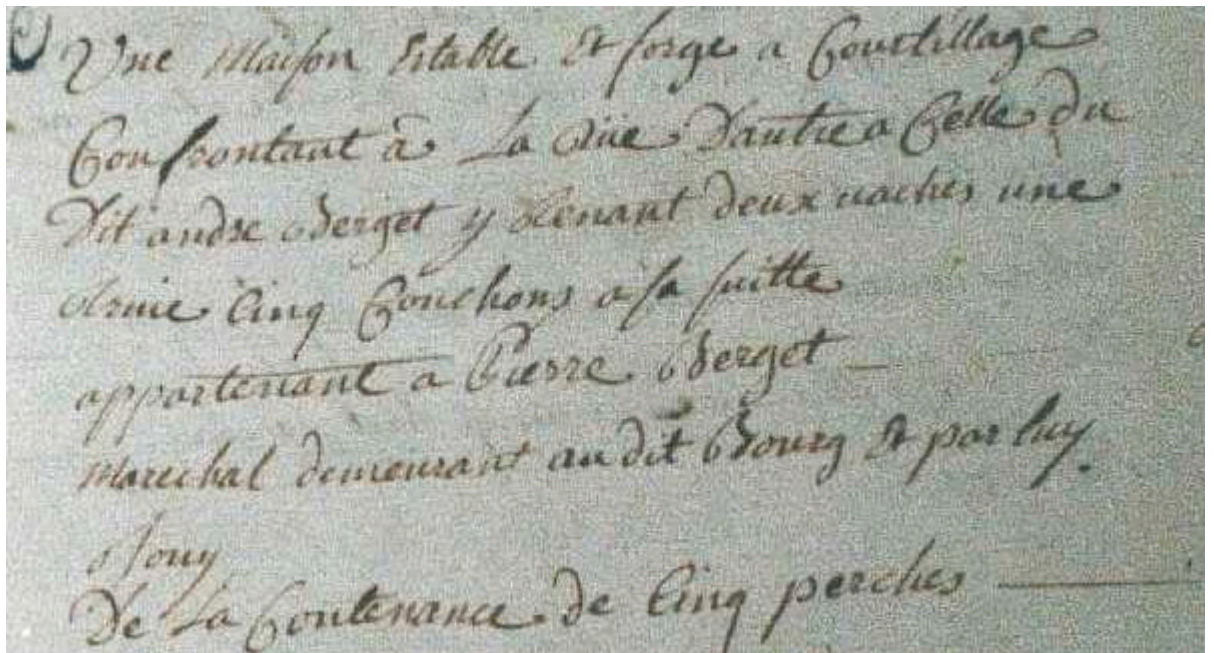 Une Maison Etable Et forge a Courtillage
Confrontant a La Rüe D'autre a Celle du
Dit andré Berget y tenant deux vaches une
cinq Couchons a sa suitte
appartenant a Pierre Berget
Marechal demeurant au dit Bourg Et par luy
Jouy
De La Contenance de Cinq perches